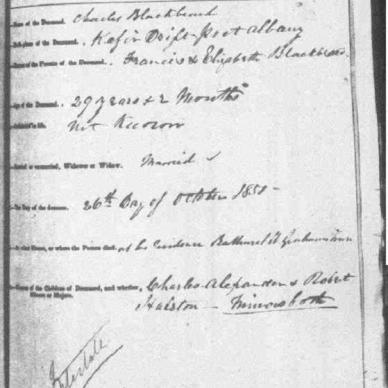 Name of the Deceased, Charles Blackbeard
Birth-place of the Deceased, Kafir Drift - Port Albany
Names of the Parents of the Deceased, Francis & Elizabeth Blackbeard
Age of the Deceased, 29 years & 2 Months
in life, not Known
Married or unmarried, Widower or Widow, Married
The Day of the decease, 26th Day of October 1850 -
At what House, or where the Person died, at his Residence Bathurst St Grahamstown
Names of the Children of Deceased, and whether Minors or Majors, Charles Alexander & Robert
Halston - Minors both
Intestate